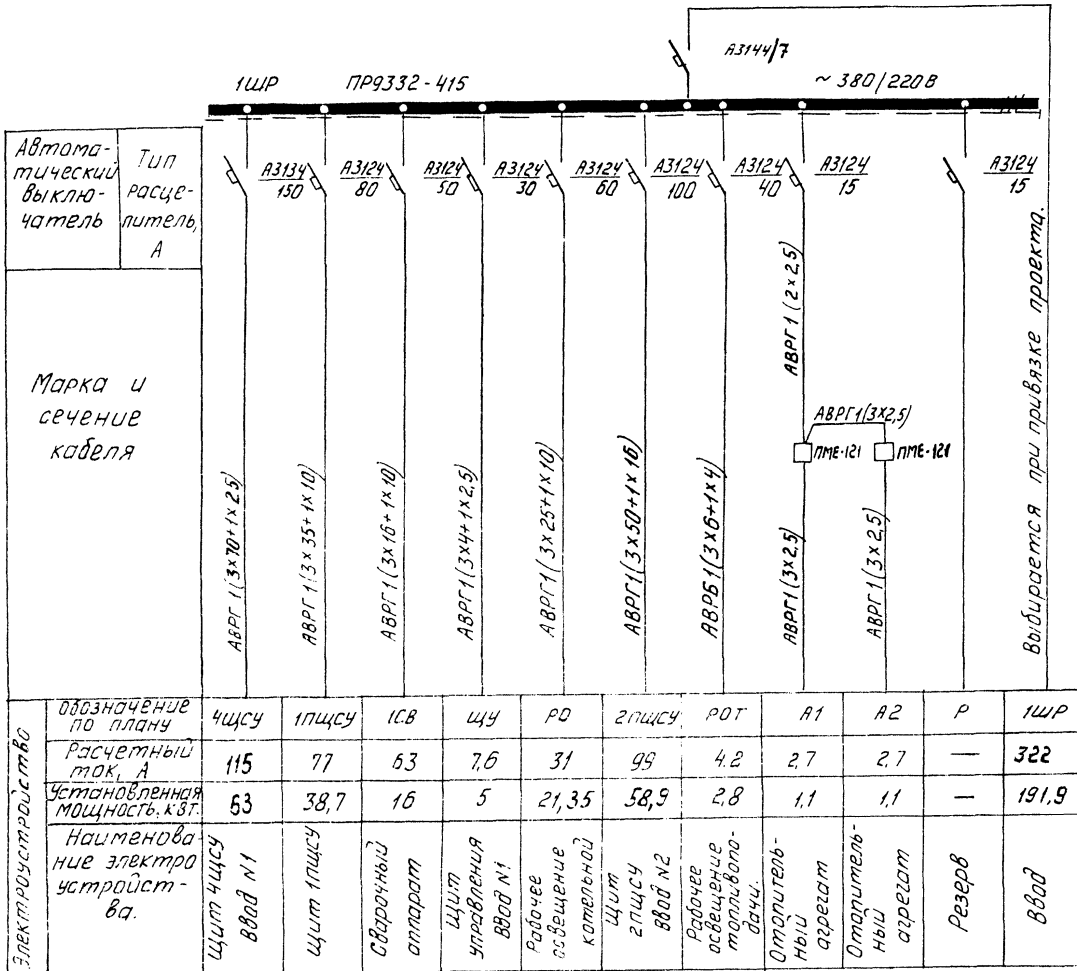 А3144/7
1ШР ПР9332-415 ~ 380/220В
Автома-
тический
выклю-
чатель
Тип
расце-
питель,
А
А3134
150
А3124
80
А3124
50
А3124
30
А3124
60
А3124
100
А3124
40
А3124
15
А3124
15
Марка и
сечение
кабеля
АВРГ 1(3×70+1×25)
АВРГ 1(3×35+1×10)
АВРГ 1(3×16+1×10)
АВРГ 1(3×4+1×2,5)
АВРГ1(3×25+1×10)
АВРГ1(3×50+1×16)
АВРБ1(3×6+1×4)
АВРГ1(2×2,5)
АВРГ1(3×2,5)
ПМЕ-121
ПМЕ-121
АВРГ1(3×2,5)
АВРГ1(3×2,5)
Выбирается при привязке проекта.
Электроустройство
Обозначение
по плану
4ЩСУ 1ПЩСУ 1СВ ЩУ РО 2ПЩСУ РОТ А1 А2 Р 1ШР
Расчетный
ток, А
115 77 63 7,6 31 99 4.2 2,7 2,7 — 322
Установленная
мощность, кВт.
63 38,7 16 5 21,35 58,9 2,8 1,1 1,1 — 191,9
Наименова-
ние электро
устройст-
ва.
Щит 4ЩСУ
Ввод №1
Щит 1ПЩСУ
Сварочный
аппарат
Щит
управления
Ввод №1
Рабочее
освещение
котельной
Щит
2ПЩСУ
Ввод №2
Рабочее
освещение
топливопо-
дачи.
Отопитель-
ный
агрегат
Отопитель-
ный
агрегат
Резерв
Ввод